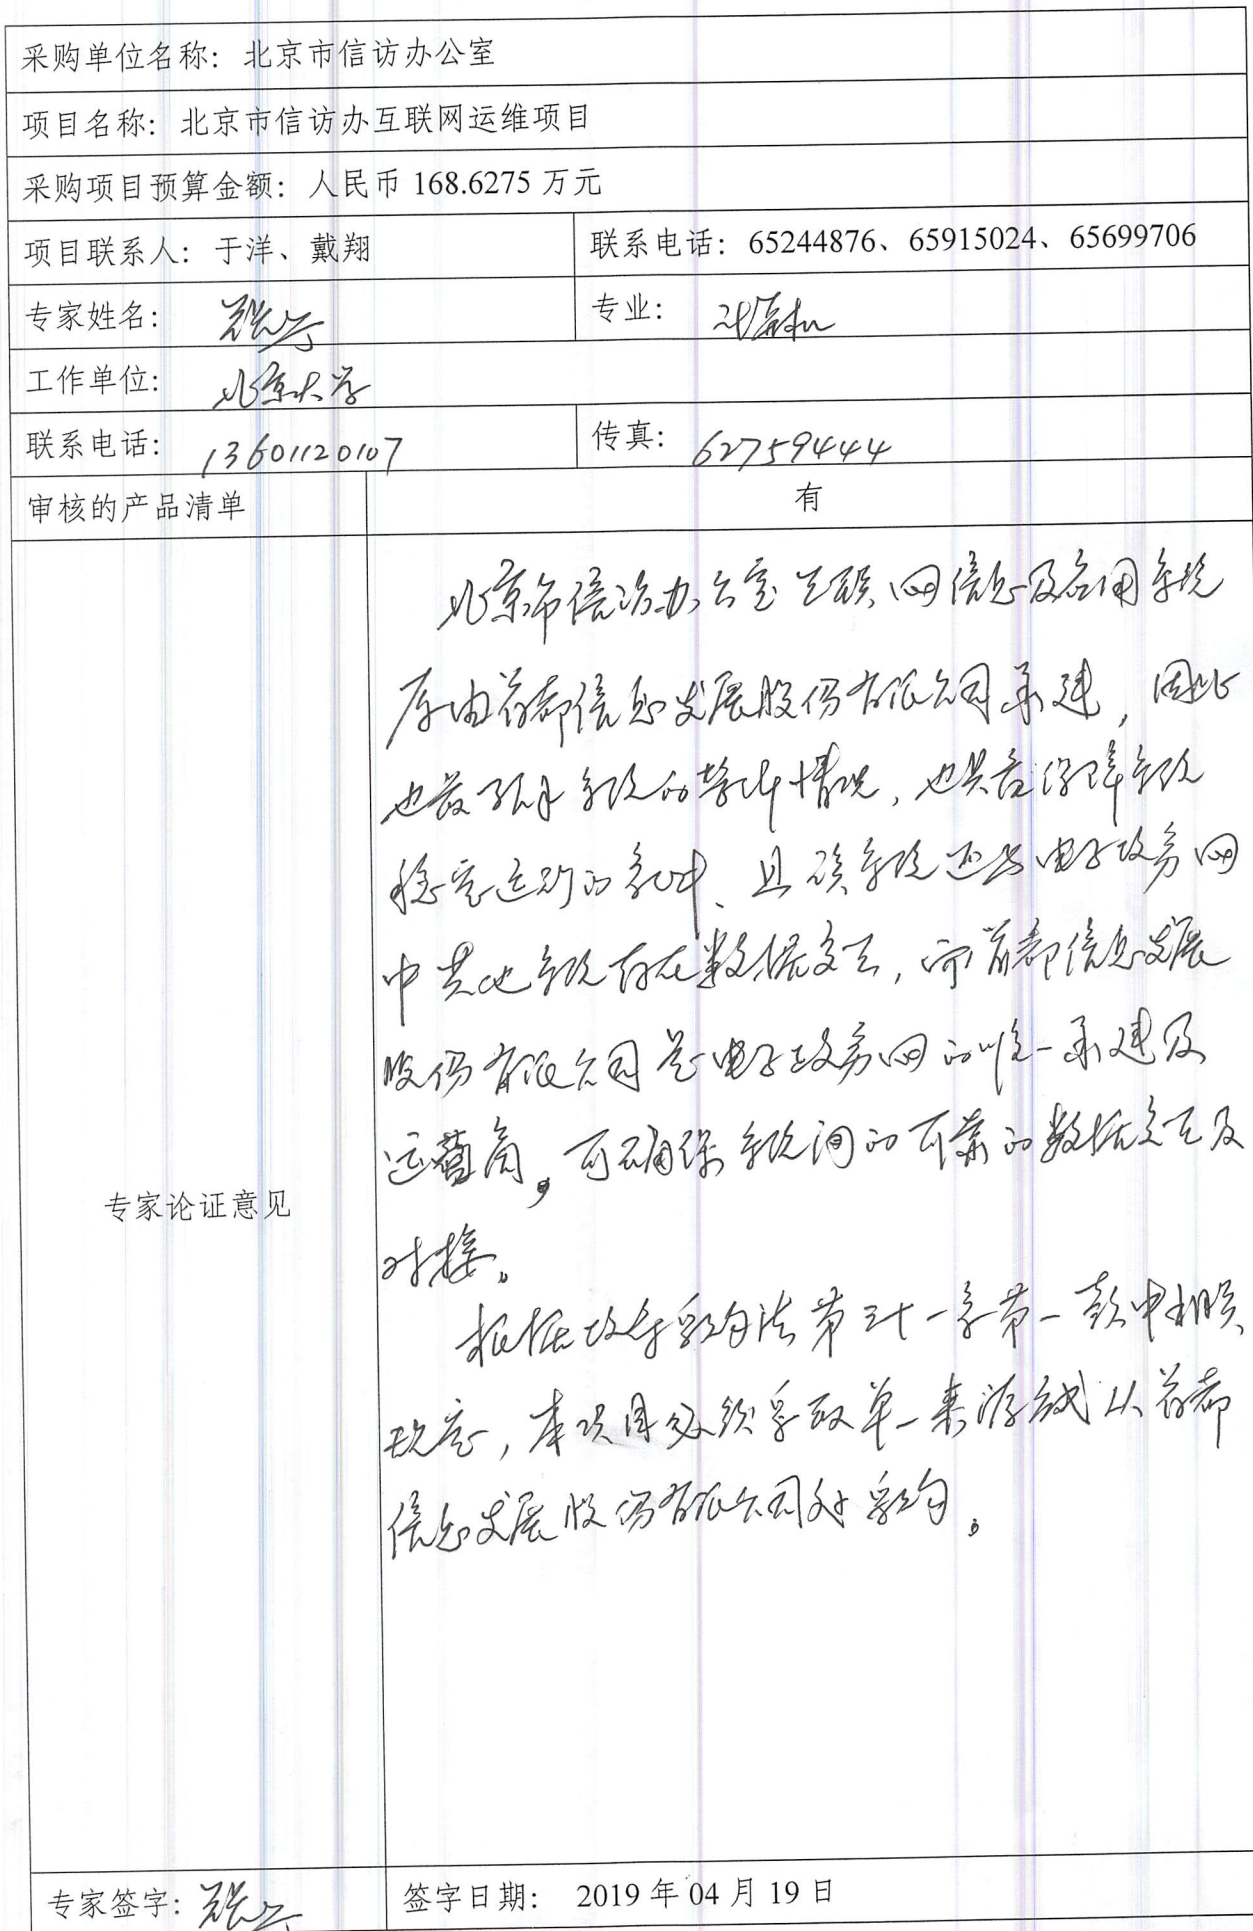 采购单位名称：北京市信访办公室
项目名称：北京市信访办互联网运维项目
采购项目预算金额：人民币 168.6275 万元
项目联系人：于洋、戴翔 联系电话：65244876、65915024、65699706
专家姓名： 专业：计算机
工作单位：北京大学
联系电话：13601120107 传真：62759444
审核的产品清单 有
专家论证意见
北京市信访办公室互联网信息及应用系统
原由首都信息发展股份有限公司承建，因此
也最了解系统的整体情况，也具备保障系统
稳定运行的条件、且该系统还与电子政务网
中其他系统存在数据交互，而首都信息发展
股份有限公司是电子政务网的唯一承建及
运营商，可确保系统间的可靠的数据交互及
对接。
根据政府采购法第三十一条第一款中相关
规定，本项目必须采取单一来源方式从首都
信息发展股份有限公司处采购。
专家签字： 签字日期： 2019 年 04 月 19 日